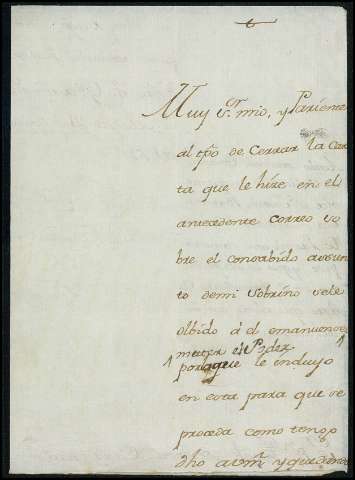 Muy Sr. mio, y Pariente
al tpo de Cerrar la Car
ta que le hize en el
antecedente Correo so
bre el consabido assun
to demi Sobrino sele
olbido à d.
meter el Poder
porque le incluyo
en esta para que se
proceda como tengo
dho avm. y quedando